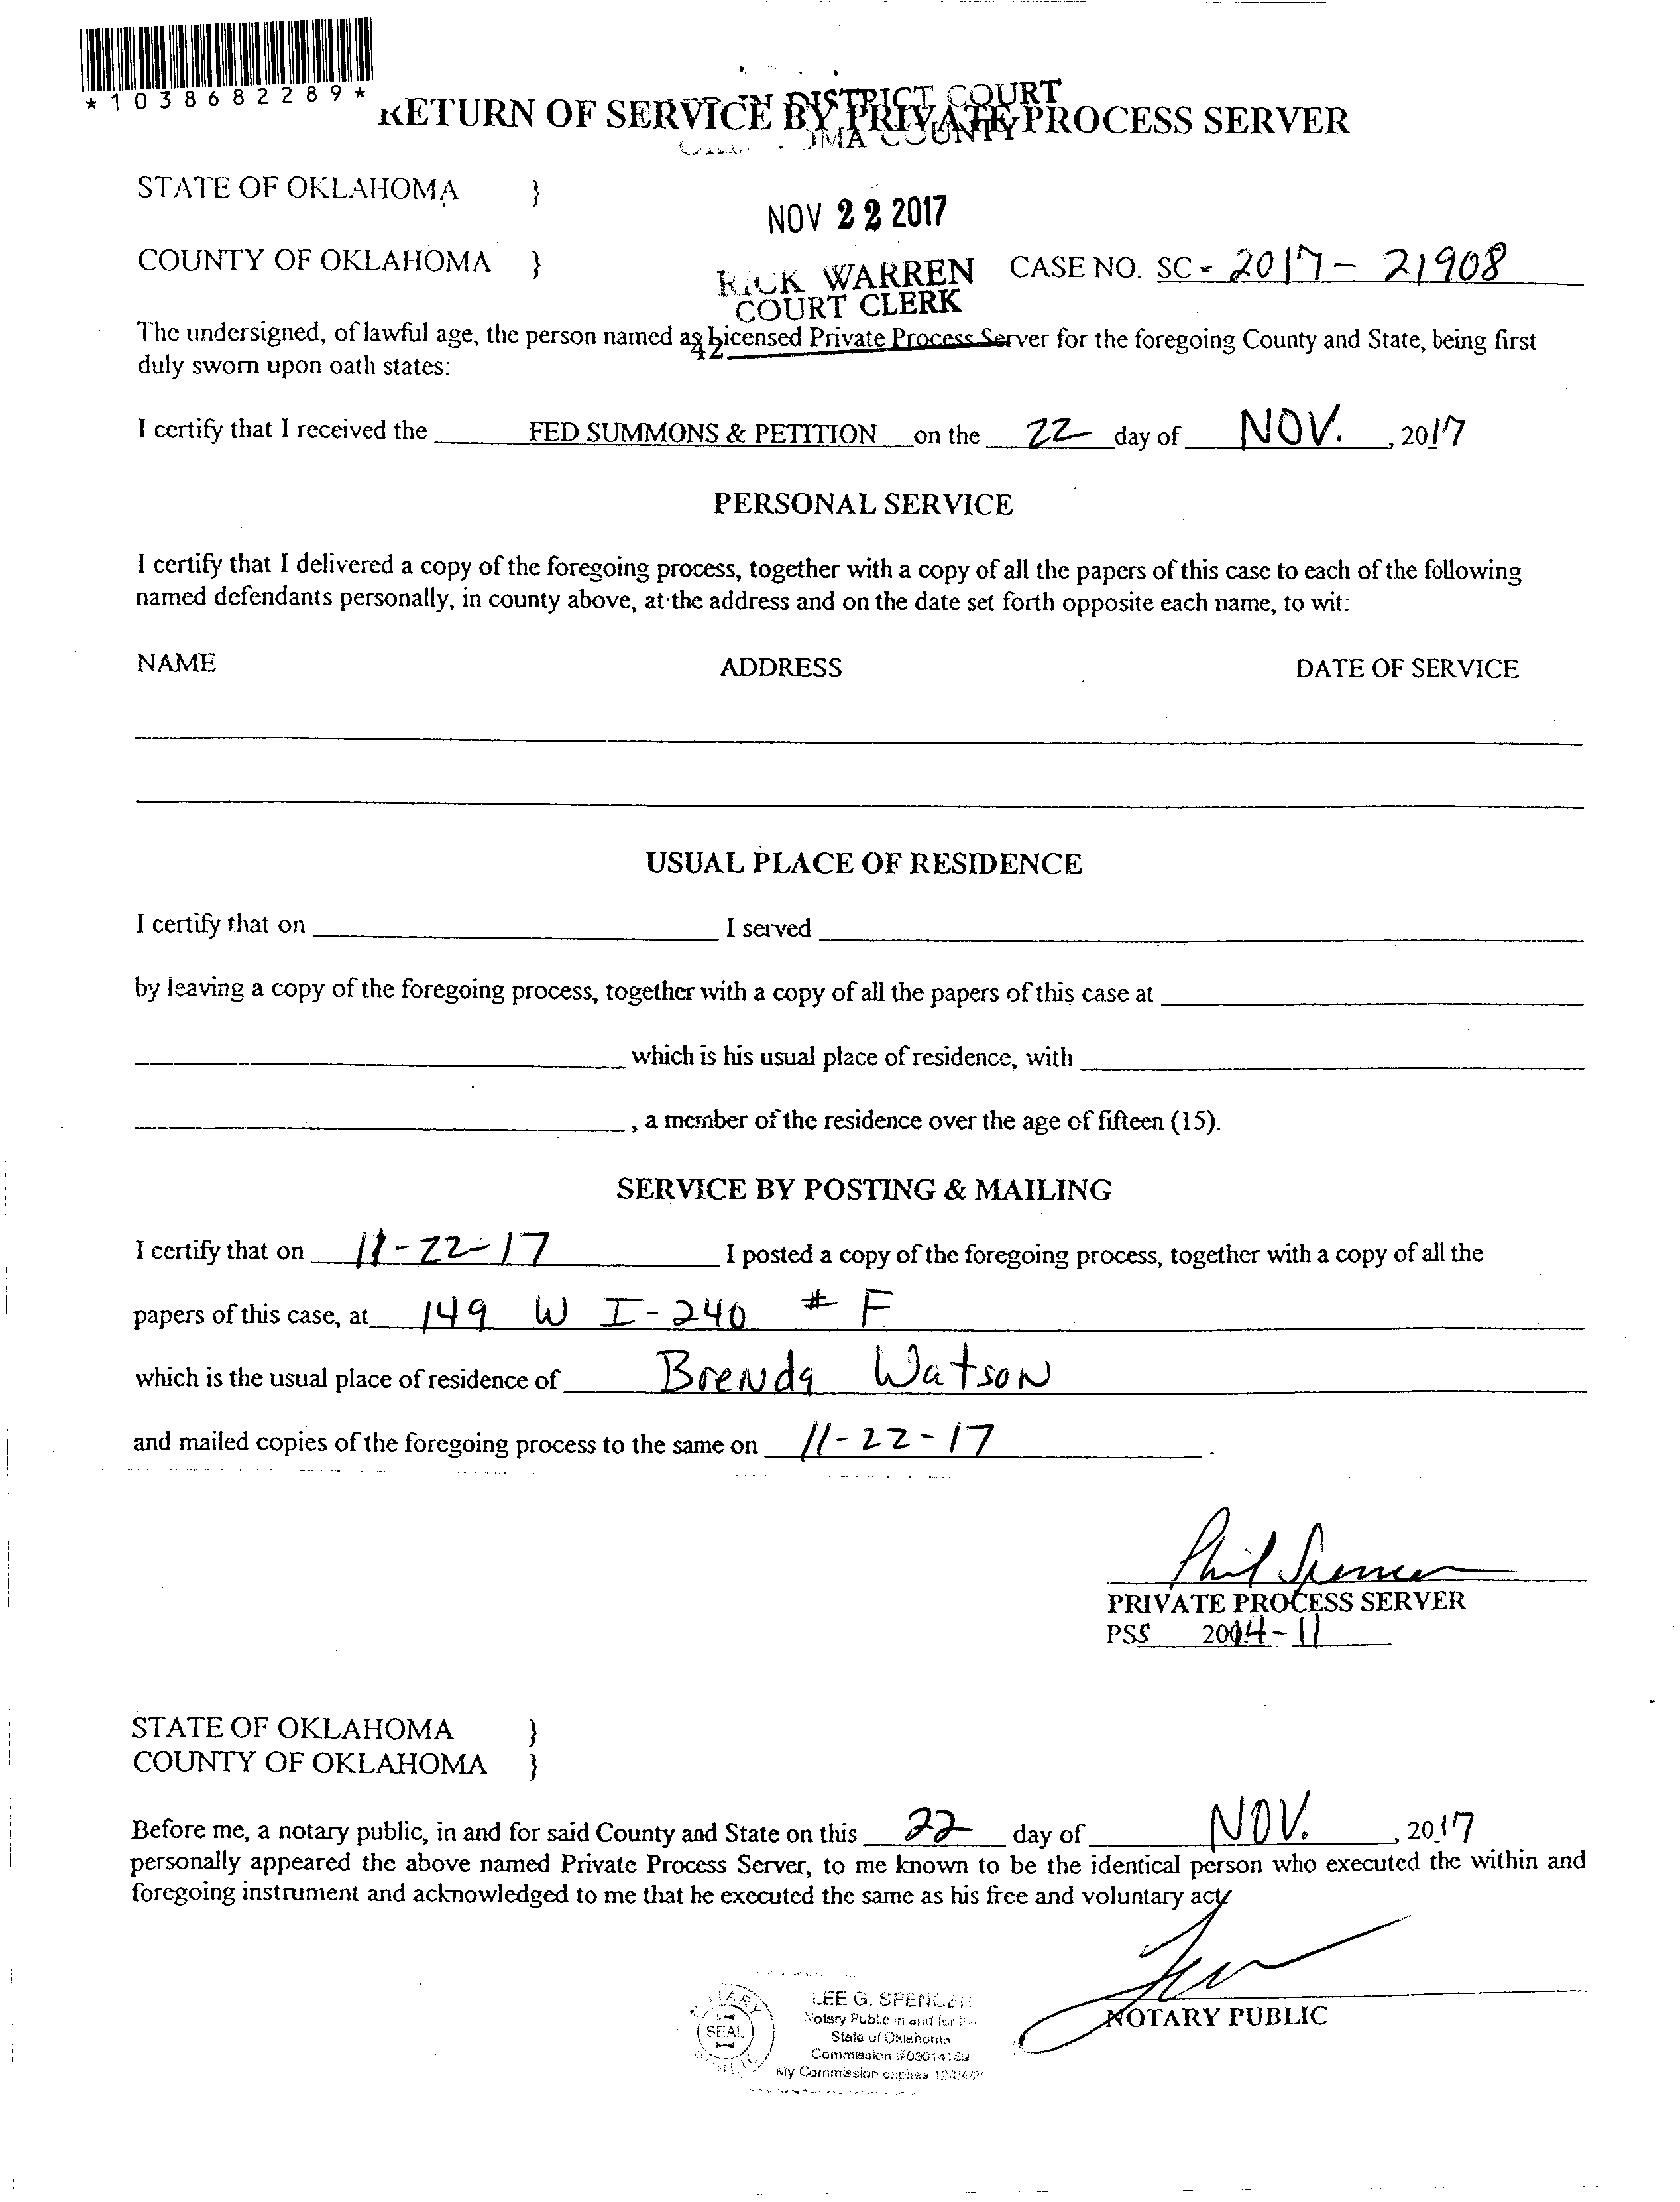 *1038682289*
RETURN OF SERVICE BY PRIVATE PROCESS SERVER
IN DISTRICT COURT
OMA COUNTY
STATE OF OKLAHOMA }
NOV 22 2017
COUNTY OF OKLAHOMA }
RICK WARREN CASE NO. SC - 2017 - 21908
COURT CLERK
The undersigned, of lawful age, the person named as Licensed Private Process Server for the foregoing County and State, being first
42
duly sworn upon oath states:
I certify that I received the FED SUMMONS & PETITION on the 22 day of NOV. , 2017
PERSONAL SERVICE
I certify that I delivered a copy of the foregoing process, together with a copy of all the papers of this case to each of the following
named defendants personally, in county above, at the address and on the date set forth opposite each name, to wit:
NAME ADDRESS DATE OF SERVICE
USUAL PLACE OF RESIDENCE
I certify that on I served
by leaving a copy of the foregoing process, together with a copy of all the papers of this case at
which is his usual place of residence, with
, a member of the residence over the age of fifteen (15).
SERVICE BY POSTING & MAILING
I certify that on 11-22-17 I posted a copy of the foregoing process, together with a copy of all the
papers of this case, at 149 W I-240 # F
which is the usual place of residence of Brenda Watson
and mailed copies of the foregoing process to the same on 11-22-17 .
Phil Spencer
PRIVATE PROCESS SERVER
PSS 2004-11
STATE OF OKLAHOMA }
COUNTY OF OKLAHOMA }
Before me, a notary public, in and for said County and State on this 22 day of NOV. , 2017
personally appeared the above named Private Process Server, to me known to be the identical person who executed the within and
foregoing instrument and acknowledged to me that he executed the same as his free and voluntary act
NOTARY PUBLIC
NOTARY
SEAL
PUBLIC
LEE G. SPENCER
Notary Public in and for the
State of Oklahoma
Commission
My Commission expires